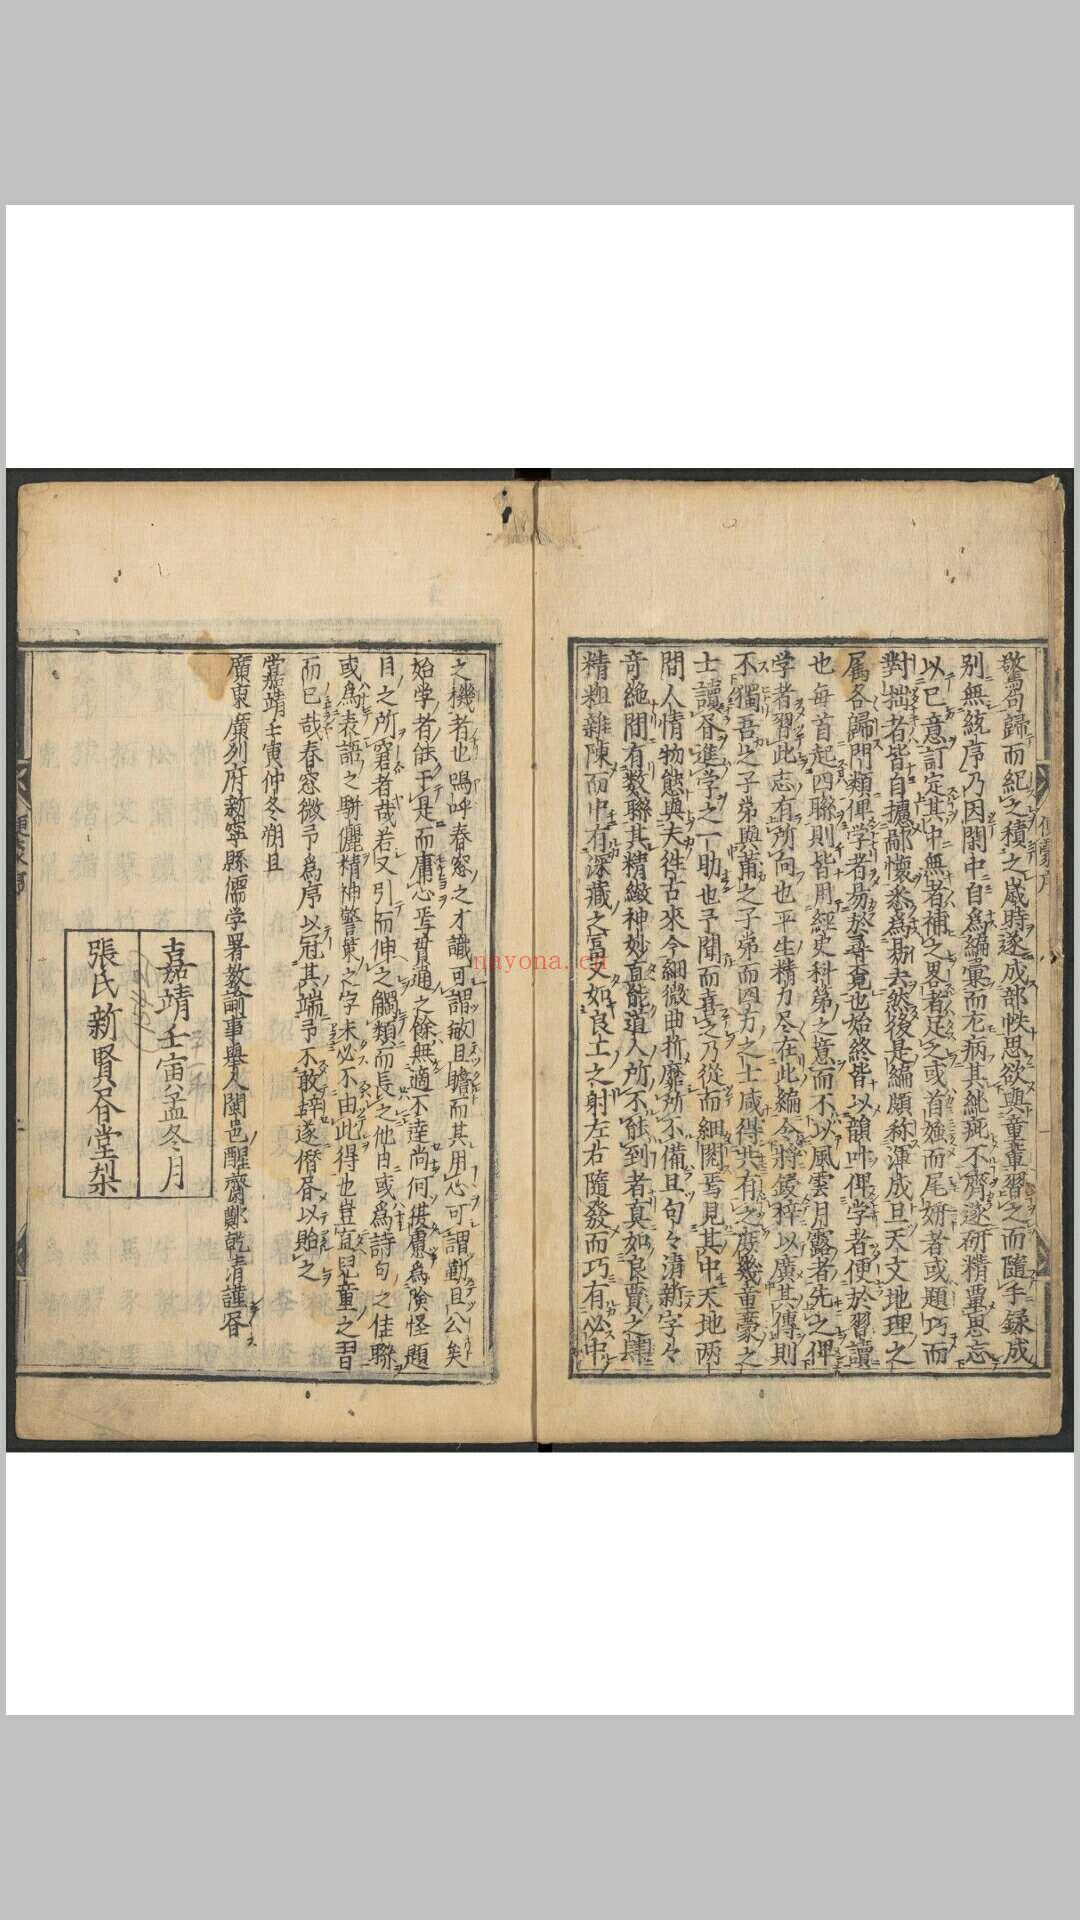 驚句歸而紀之積之歲時遂成部帙思欲與童輩習之而隨手録成
別無統序乃因閑中自爲編彙而尤病其純疵不齊遂研精覃思忘
以已意訂定其中無者補之畧者足之或首雄而尾妍者或題巧而
對拙者皆自攄鄙懷悉爲剏去然後是編頗称渾成且天文地理之
属各歸門類俾学者易於尋覓也始終皆以韻叶俾学者便於習讀
也每首起四聯則皆用經史科第之意而不以風雲月露者先之俾
学者習此志有所向也平生精力尽在此編今將鋟梓以廣其傳則
不獨吾之子弟與莆之子弟而四方之士咸得共有之庶幾童蒙之
士讀昏進学之一助也予聞而喜之乃從而細閱焉見其中天地兩
間人情物態與夫徃古來今細微曲折靡所不備且句々清新字々
奇絶間有数聯其精緻神妙直能道人所不能到者真如良賈之肆
精粗雜陳而中有深藏之富又如良工之射左右隨發而巧有必中
之機者也嗚呼春窓之才識可謂敏且贍而其用心可謂勤且公矣
始学者能于是而庸心焉貫通之餘無適不逹尚何俟慮為險怪題
目之所窘者哉若又引而伸之觸類而長之他日或爲詩句之佳聯
或爲表語之駢儷精神警策之字未必不由此得也豈宜兒童之習
而已哉春窓微予爲序以冠其端予不敢辞遂僭昏以貽之
當嘉靖壬寅仲冬朔旦
廣東廣州府新寧縣儒学署教諭事舉人閩邑醒齋鄭乾清謹昏
嘉靖壬寅孟冬月
張氏新賢昏堂梨
nayona.cn